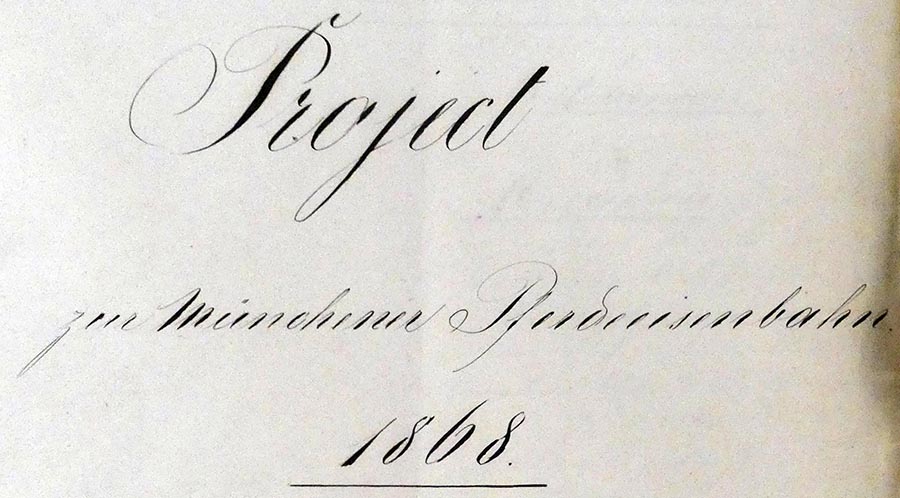 Project
zur Münchener Pferdeeisenbahn.
1868.